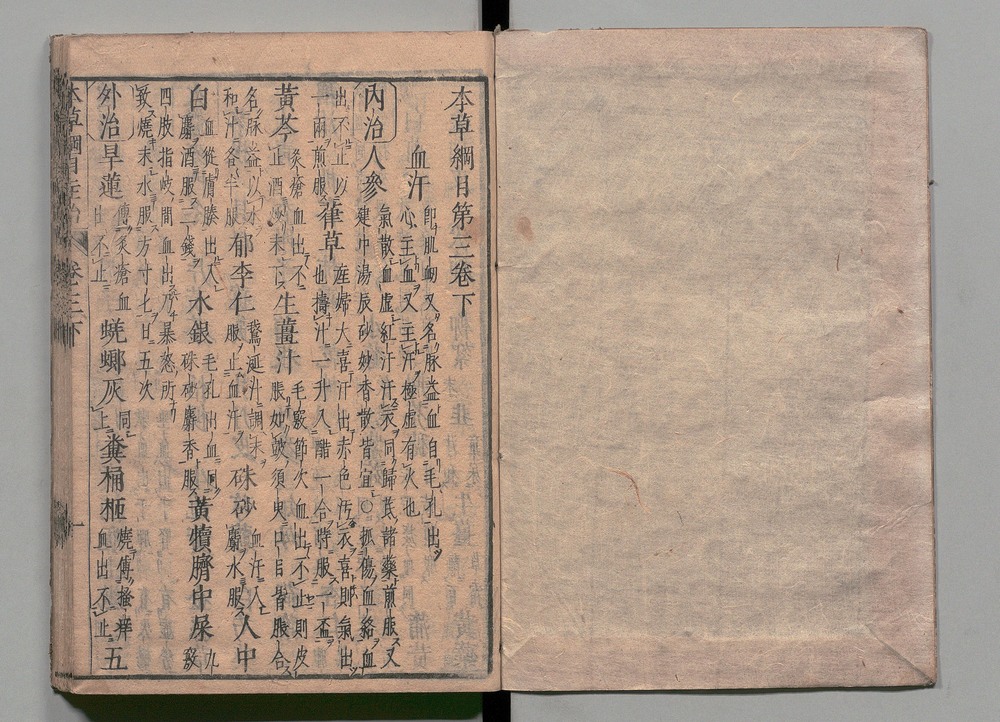 本草綱目第三卷下
血汗
即肌衄又名脉溢血自毛孔出
心主血又主汗極虛有火也
內治
人參
氣散血虛紅汗汗衣同歸芪諸藥煎服又
建中湯辰砂妙香散皆宜○抓傷血絡血
出不止以
一兩煎服
葎草
產婦大喜汗出赤色汚衣喜則氣出
也擣汁一升入醋一合時服一盃
黃芩
灸瘡血出不
止酒炒末下
生薑汁
毛竅節次血出不止則皮
脹如皷須臾口目皆脹合
名脉溢以水
和汁各半服
郁李仁
鵞涎汁調末
服止血汗
朱砂
血汗入
麝水服
人中
白
血從膚腠出入
麝酒服二錢
水銀
毛孔出血同
硃砂麝香服
黃犢臍中屎
九竅
四肢指岐間血出乃暴怒所
致燒末水服方寸匕日五次
外治
旱蓮
傅灸瘡血
出不止
蜣蜋灰
同上
糞桶箍
燒傅搔痒
血出不止
五
本草綱目主治 卷三下 一